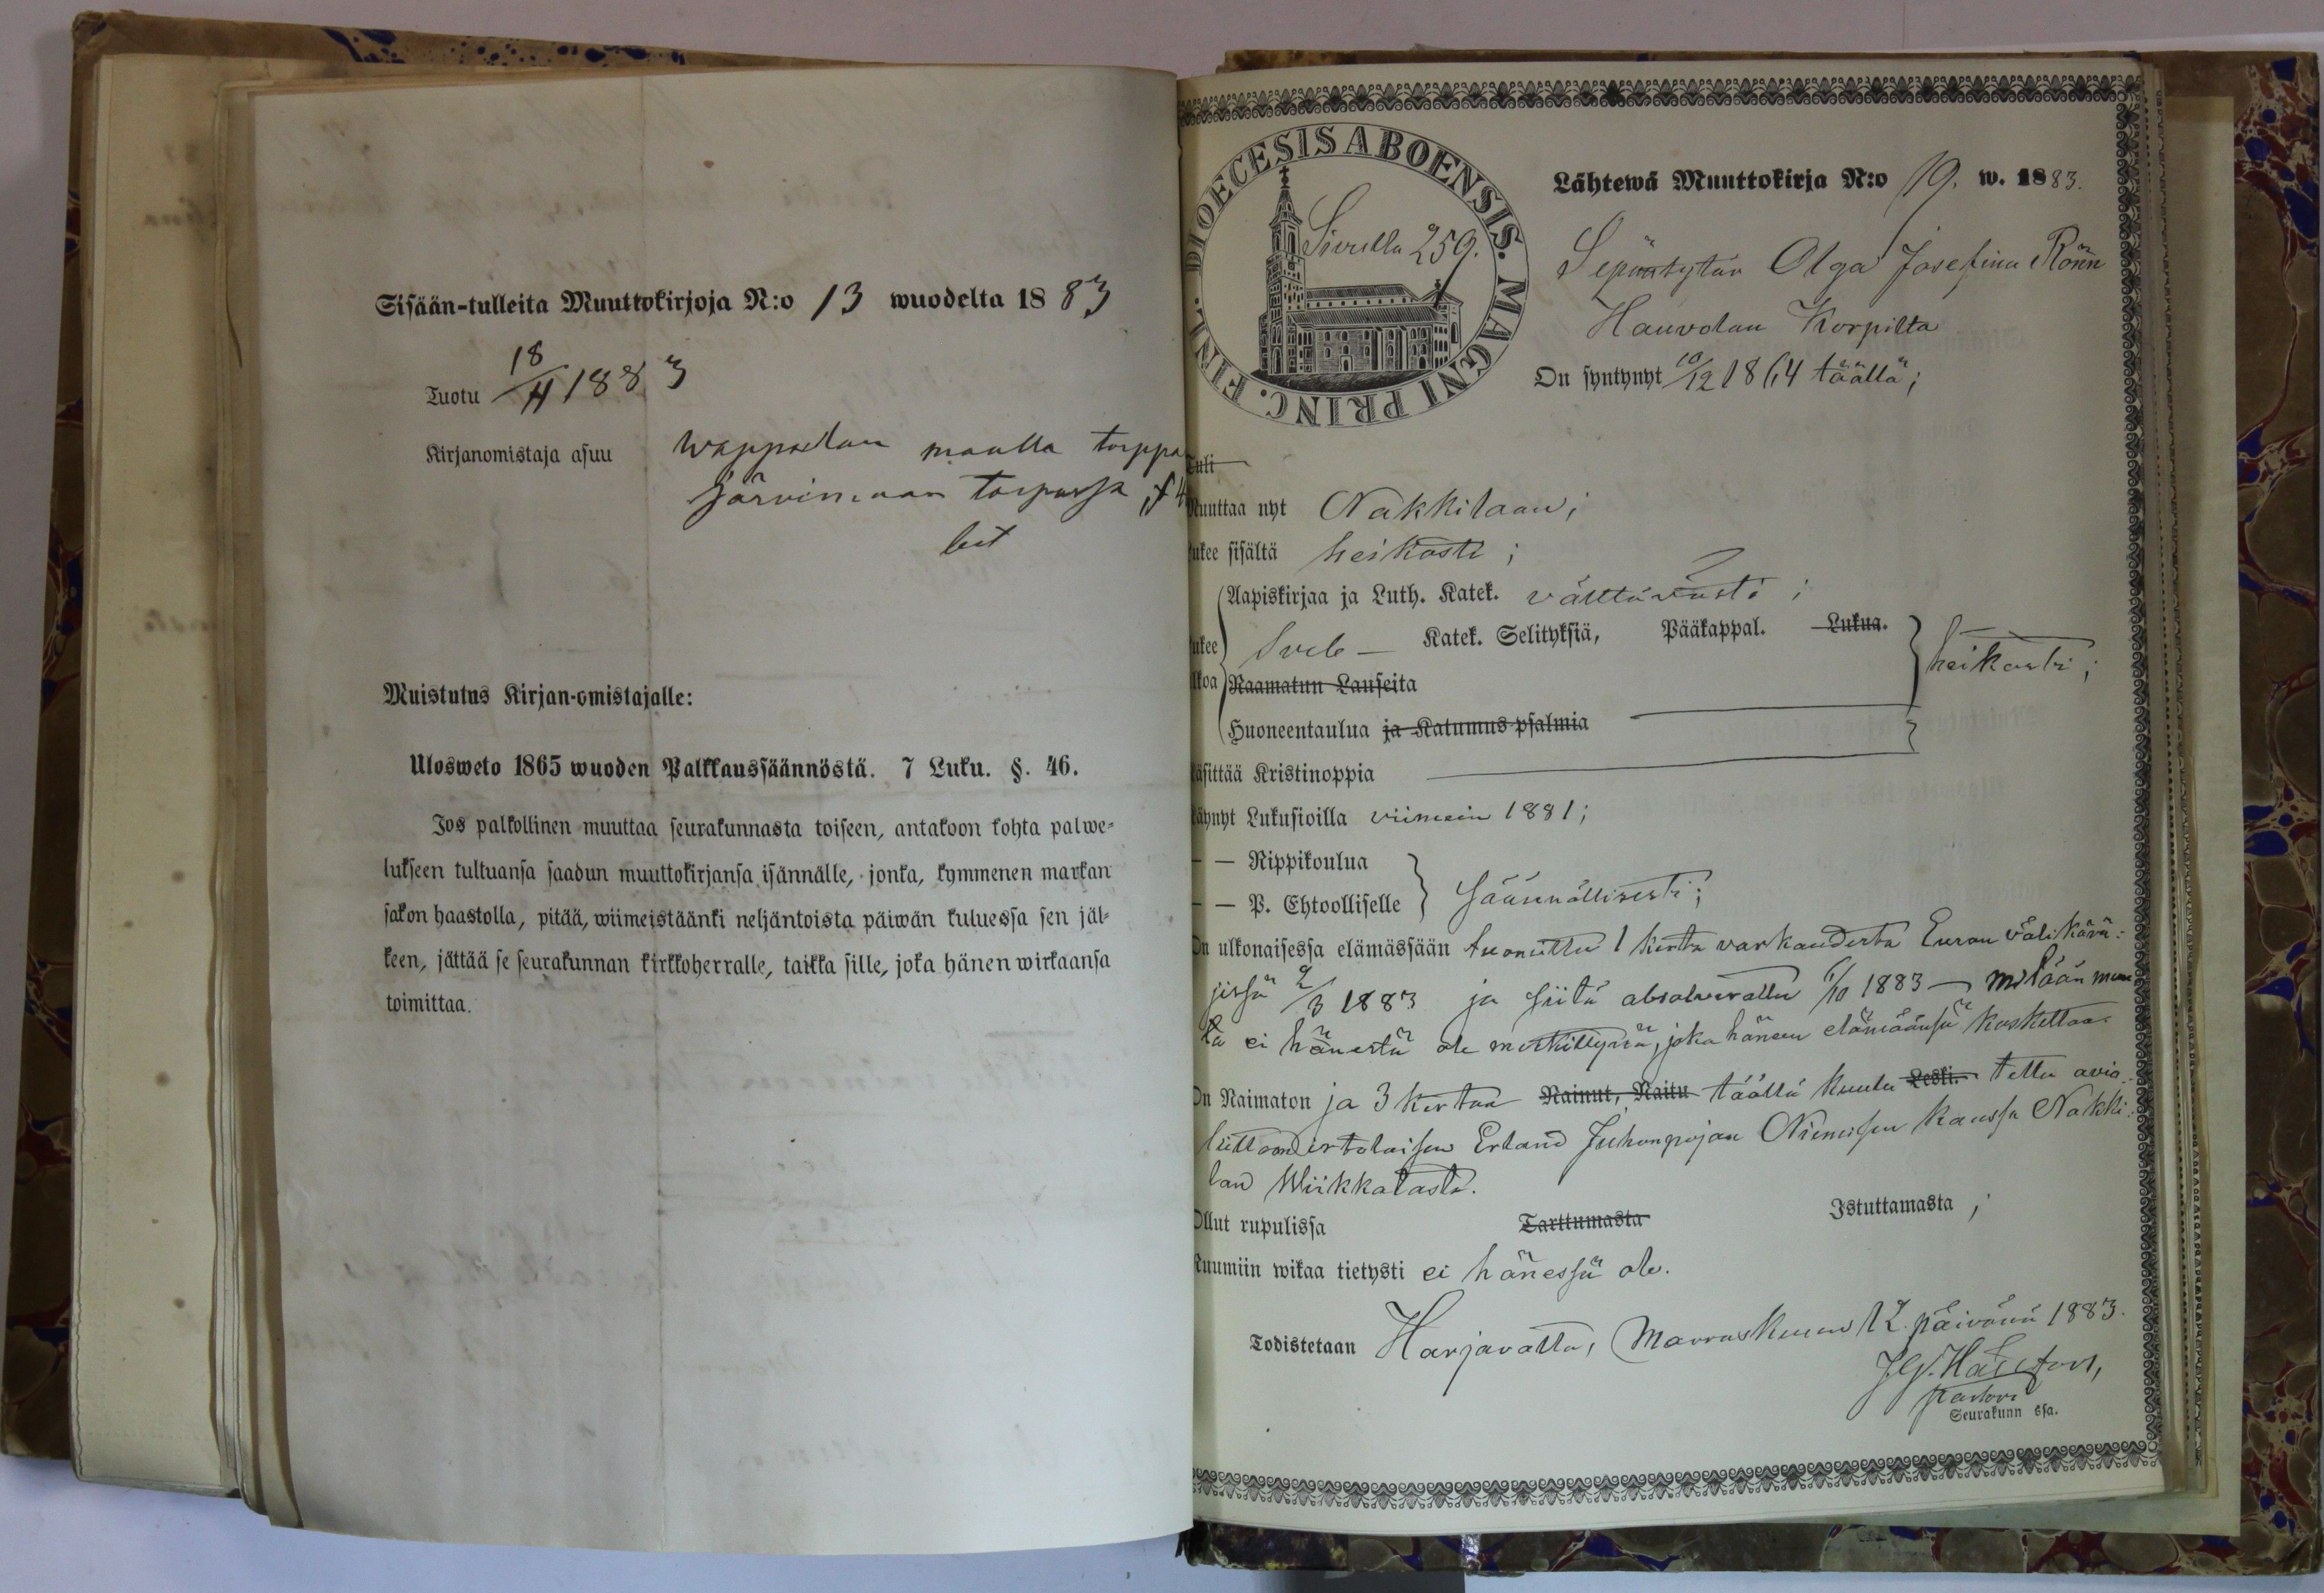 Sisään-tulleita Muuttokirjoja N:o 13 wuodelta 1883
Tuotu 18/11 1883
Kirjanomistaja asuu maalla torppa
Järvinmaan torpassa
Muistutus Kirjan-omistajalle:
Ulosweto 1865 wuoden Palkkaussäännöstä. 7 Luku. §. 46.
Jos palkollinen muuttaa seurakunnasta toiseen, antakoon kohta palwe-
lukseen tultuansa saadun muuttokirjansa isännälle, jonka, kymmenen markan
sakon haastolla, pitää, wiimeistäänki neljäntoista päiwän kuluessa sen jäl-
keen, jättää se seurakunnan kirkkoherralle, taikka sille, joka hänen wirkaansa
toimittaa.
DIOECESIS ABOENSIS. MAGNI PRINC. FINL.
Sivulla 259.
Lähtewä Muuttokirja N:o 19. w. 1883.
Sepäntytär Olga Josefina Rönn
Hauvolan Korpilta
On syntynyt 10/12 1864 täällä;
Tuli
Muuttaa nyt Nakkilaan;
Lukee sisältä heikosti;
Aapiskirjaa ja Luth. Katek. välttävästi;
Lukee Sveb— Katek. Selityksiä, Pääkappal. Lukua.
ulkoa Raamatun Lauseita heikosti;
Huoneentaulua ja Katumus-psalmia
Käsittää Kristinoppia
Käynyt Lukusioilla viimein 1881;
— — Rippikoulua
— — P. Ehtoolliselle säännöllisesti;
On ulkonaisessa elämässään tuomittu 1 kerta varkaudesta Euran välikärä-
jissä 2/3 1883 ja siitä absolverattu 6/10 1883 — mitään muu
ta ei hänestä ole merkittynä, joka hänen elämäänsä koskettaa.
On Naimaton ja 3 kertaa Nainut, Naitu täällä kuulu Leski. tettu avio-
liittoon irtolaisen Erland Juhonpojan Niemisen kanssa Nakki-
lan Wiikkalasta.
Ollut rupulissa Tarttumasta Istuttamasta;
Ruumiin wikaa tietysti ei hänessä ole.
Todistetaan Harjavalta, Marraskuun 12. päivänä 1883.
pastori
Seurakunn ssa.